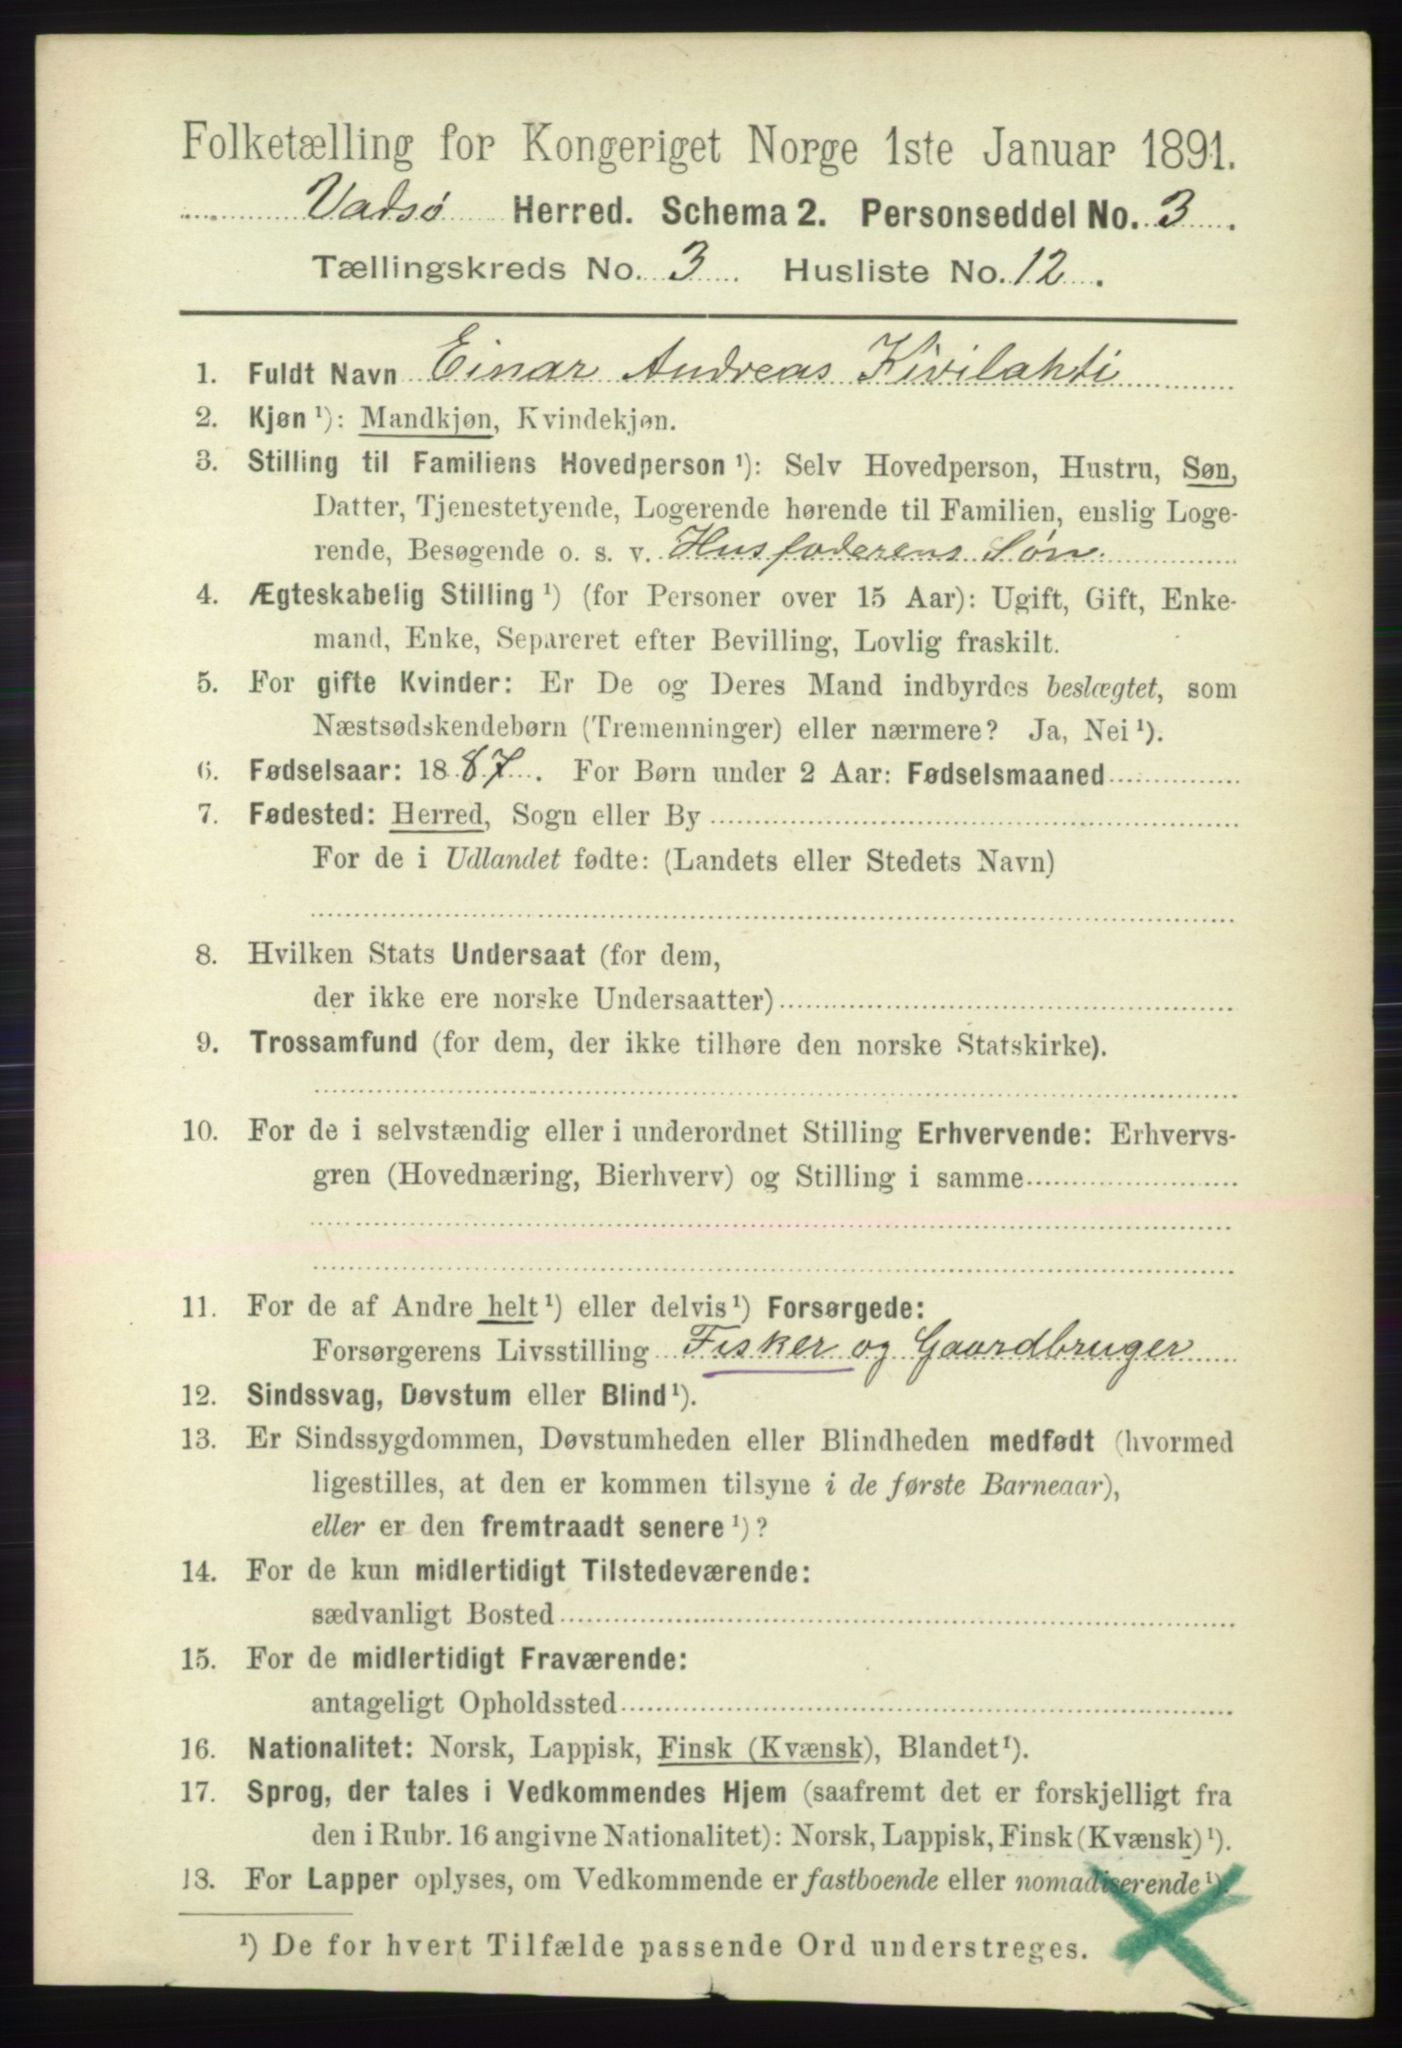 Folketælling for Kongeriget Norge 1ste Januar 1891.
Vadsø Herred. Schema 2. Personseddel No. 3.
Tællingskreds No. 3. Husliste No. 12.
1. Fuldt Navn Einar Andreas Kivilahti
2. Kjøn ¹): Mandkjøn, Kvindekjøn.
3. Stilling til Familiens Hovedperson ¹): Selv Hovedperson, Hustru, Søn,
Datter, Tjenestetyende, Logerende hørende til Familien, enslig Loge-
rende, Besøgende o. s. v. Husfaderens Søn.
4. Ægteskabelig Stilling ¹) (for Personer over 15 Aar): Ugift, Gift, Enke-
mand, Enke, Separeret efter Bevilling, Lovlig fraskilt.
5. For gifte Kvinder: Er De og Deres Mand indbyrdes beslægtet, som
Næstsødskendebørn (Tremenninger) eller nærmere? Ja, Nei ¹).
6. Fødselsaar: 1887. For Børn under 2 Aar: Fødselsmaaned
7. Fødested: Herred, Sogn eller By
For de i Udlandet fødte: (Landets eller Stedets Navn)
8. Hvilken Stats Undersaat (for dem,
der ikke ere norske Undersaatter)
9. Trossamfund (for dem, der ikke tilhøre den norske Statskirke).
10. For de i selvstændig eller i underordnet Stilling Erhvervende: Erhvervs-
gren (Hovednæring, Bierhverv) og Stilling i samme
11. For de af Andre helt ¹) eller delvis ¹) Forsørgede:
Forsørgerens Livsstilling Fisker og Gaardbruger
12. Sindssvag, Døvstum eller Blind ¹).
13. Er Sindssygdommen, Døvstumheden eller Blindheden medfødt (hvormed
ligestilles, at den er kommen tilsyne i de første Barneaar),
eller er den fremtraadt senere ¹)?
14. For de kun midlertidigt Tilstedeværende:
sædvanligt Bosted
15. For de midlertidigt Fraværende:
antageligt Opholdssted
16. Nationalitet: Norsk, Lappisk, Finsk (Kvænsk), Blandet ¹).
17. Sprog, der tales i Vedkommendes Hjem (saafremt det er forskjelligt fra
den i Rubr. 16 angivne Nationalitet): Norsk, Lappisk, Finsk (Kvænsk) ¹).
18. For Lapper oplyses, om Vedkommende er fastboende eller nomadiserende ¹).
¹) De for hvert Tilfælde passende Ord understreges.